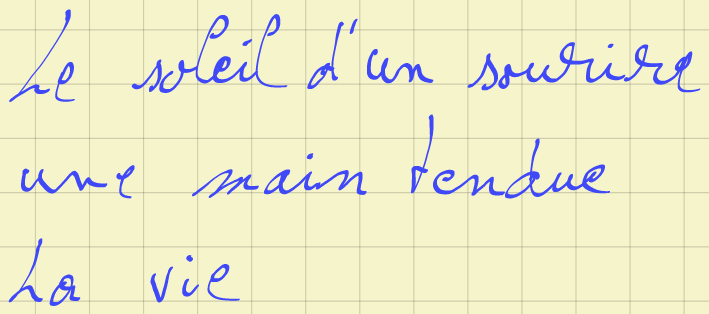 Le soleil d'un sourire
une main tendue
La vie